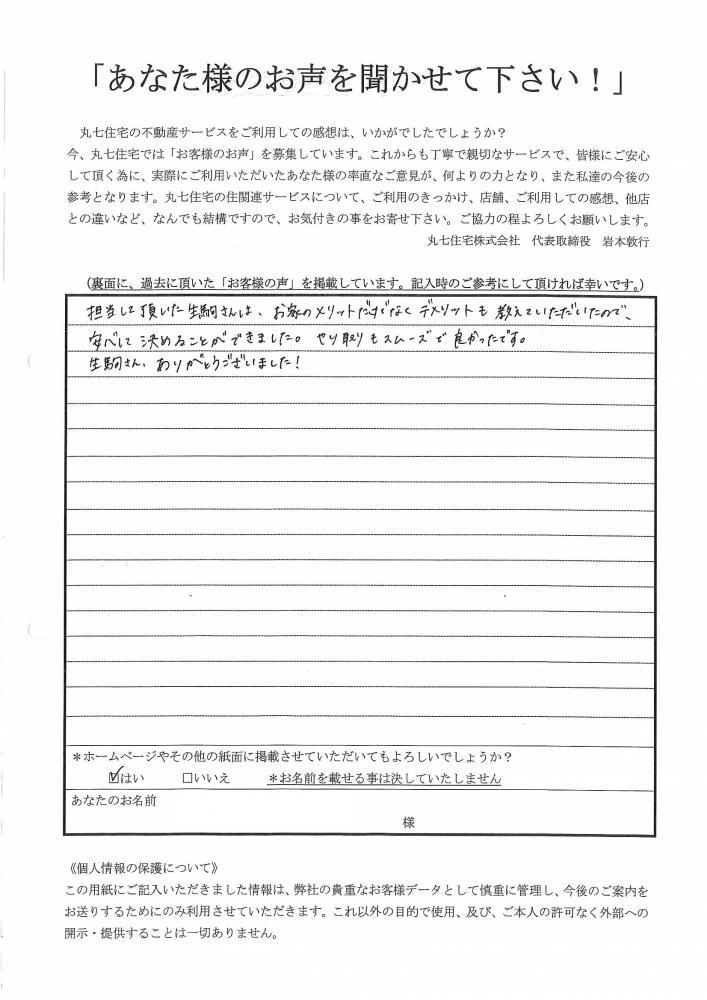 「あなた様のお声を聞かせて下さい！」
丸七住宅の不動産サービスをご利用しての感想は、いかがでしたでしょうか？
今、丸七住宅では「お客様のお声」を募集しています。これからも丁寧で親切なサービスで、皆様にご安心
して頂く為に、実際にご利用いただいたあなた様の率直なご意見が、何よりの力となり、また私達の今後の
参考となります。丸七住宅の住関連サービスについて、ご利用のきっかけ、店舗、ご利用しての感想、他店
との違いなど、なんでも結構ですので、お気付きの事をお寄せ下さい。ご協力の程よろしくお願いします。
丸七住宅株式会社　代表取締役　岩本敦行
（裏面に、過去に頂いた「お客様の声」を掲載しています。記入時のご参考にして頂ければ幸いです。）
担当して頂いた生駒さんは、お家のメリットだけでなくデメリットも教えていただいたので、
安心して決めることができました。やり取りもスムーズで良かったです。
生駒さん、ありがとうございました！
＊ホームページやその他の紙面に掲載させていただいてもよろしいでしょうか？
☑はい　□いいえ　＊お名前を載せる事は決していたしません
あなたのお名前
様
《個人情報の保護について》
この用紙にご記入いただきました情報は、弊社の貴重なお客様データとして慎重に管理し、今後のご案内を
お送りするためにのみ利用させていただきます。これ以外の目的で使用、及び、ご本人の許可なく外部への
開示・提供することは一切ありません。